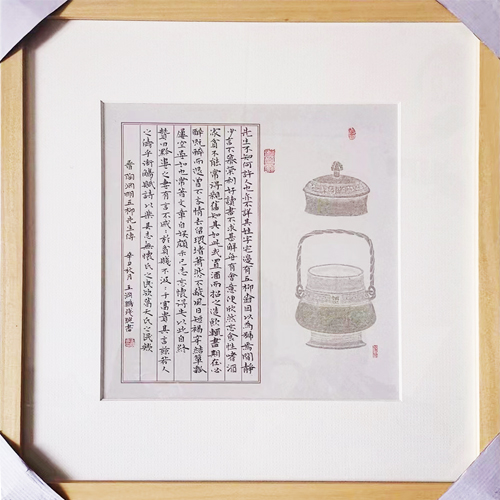 先生不知何許人也亦不詳其姓字宅邊有五柳樹因以為號焉閑靜
少言不慕榮利好讀書不求甚解每有會意便欣然忘食性嗜酒
家貧不能常得親舊知其如此或置酒而招之造飲輒盡期在必
醉既醉而退曾不吝情去留環堵蕭然不蔽風日短褐穿結簞瓢
屢空晏如也常著文章自娛頗示己志忘懷得失以此自終
贊曰黔婁之妻有言不戚々於貧賤不汲々于富貴其言茲若人
之儔乎銜觴賦詩以樂其志無懷氏之民歟葛天氏之民歟
晉陶淵明五柳先生傳 辛丑秋月 王洪鵬 書